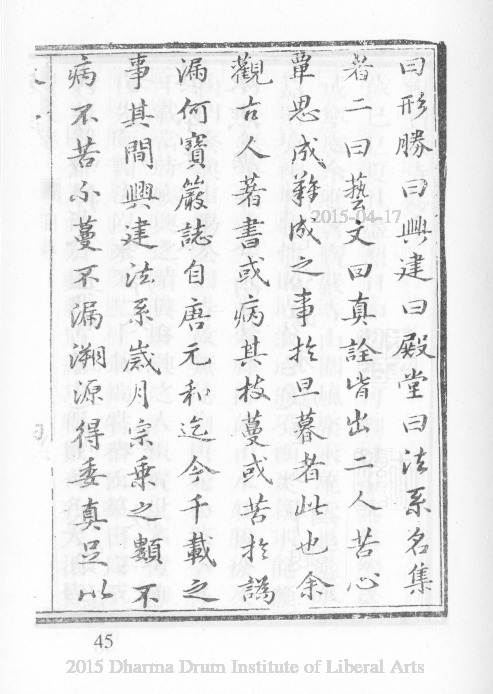 曰形勝曰興建曰殿堂曰法系名集
者二曰藝文曰真詮皆出一人苦心
覃思成難成之事於旦暮者此也余
觀古人著書或病其枝蔓或苦於譌
漏何寶巖誌自唐元和迄今千載之
事其間興建法系嵗月宗乗之𩔖不
病不苦不蔓不漏溯源得委真足以
2015-04-17
45
2015 Dharma Drum Institute of Liberal Arts